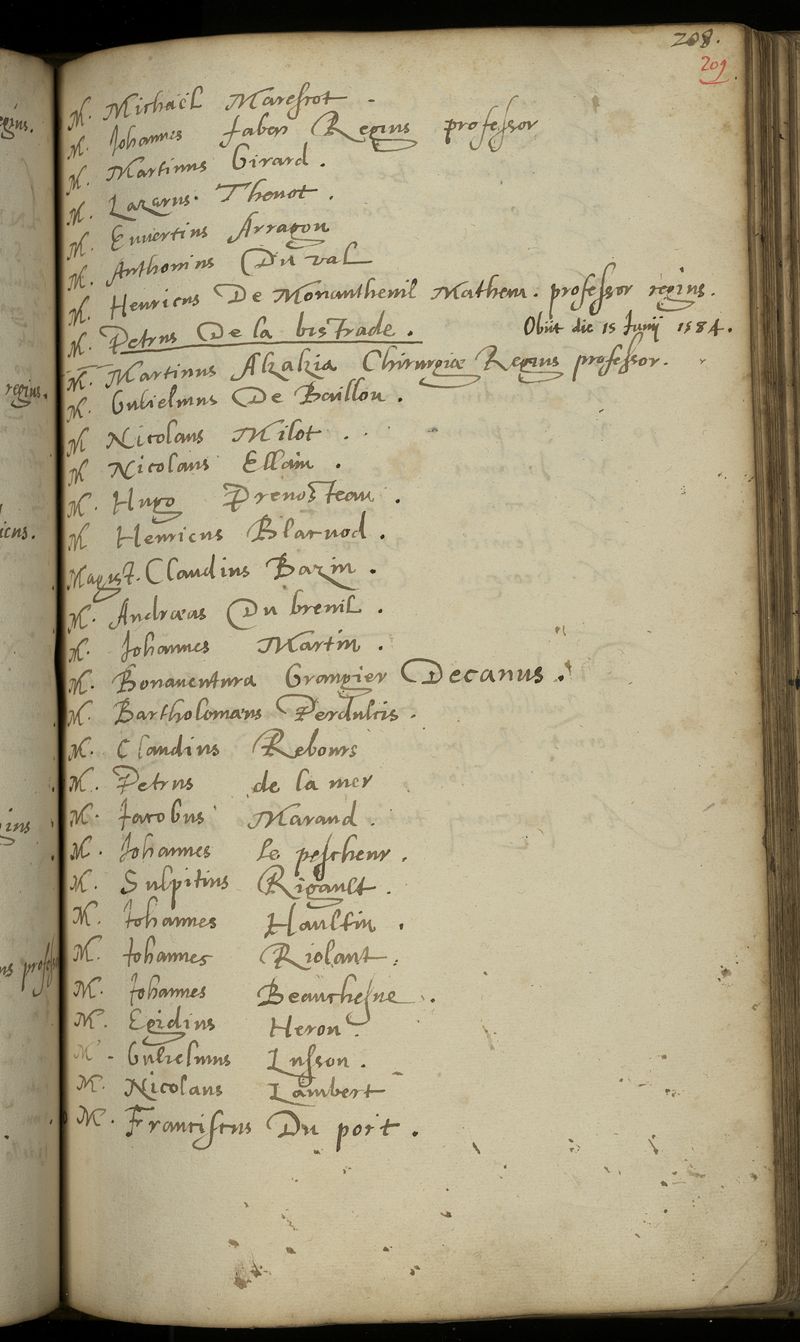 208.
209.
M. Michaël Marescot -
M. Johannes Faber Regius professor
M. Martinus Girard.
M. Lazarus Thenot.
M. Euuertius Arragon
M. Anthonius Du val
M. Henricus De Monantheuil Mathem. professor regius.
M. Petrus De la bistrade. Obiit die 15 Junij 1584.
M. Martinus Akakia Chirurgiæ Regius professor.
M. Gulielmus De Baillou.
M Nicolaus Milot.
M Nicolaus Ellain.
M. Hugo Preuosteau.
M Henricus Blacuod.
Magist. Claudius Bazin.
M. Andræas Du breuil.
M. Johannes Martin.
M. Bonauentura Grangier Decanus.
M. Bartholomæus Perdulcis.
M. Claudius Rebours
M. Petrus de la mer
M. Jacobus Marand.
M. Johannes le pescheur.
M. Sulpitius Rigault.
M. Johannes Haultin.
M. Johannes Riolant.
M. Johannes Beauchesne.
M. Egidius Heron
M. Gulielmus Lusson.
M. Nicolaus Lambert
M. Franciscus Du port.
egius.
regius.
icus.
ius
us profess